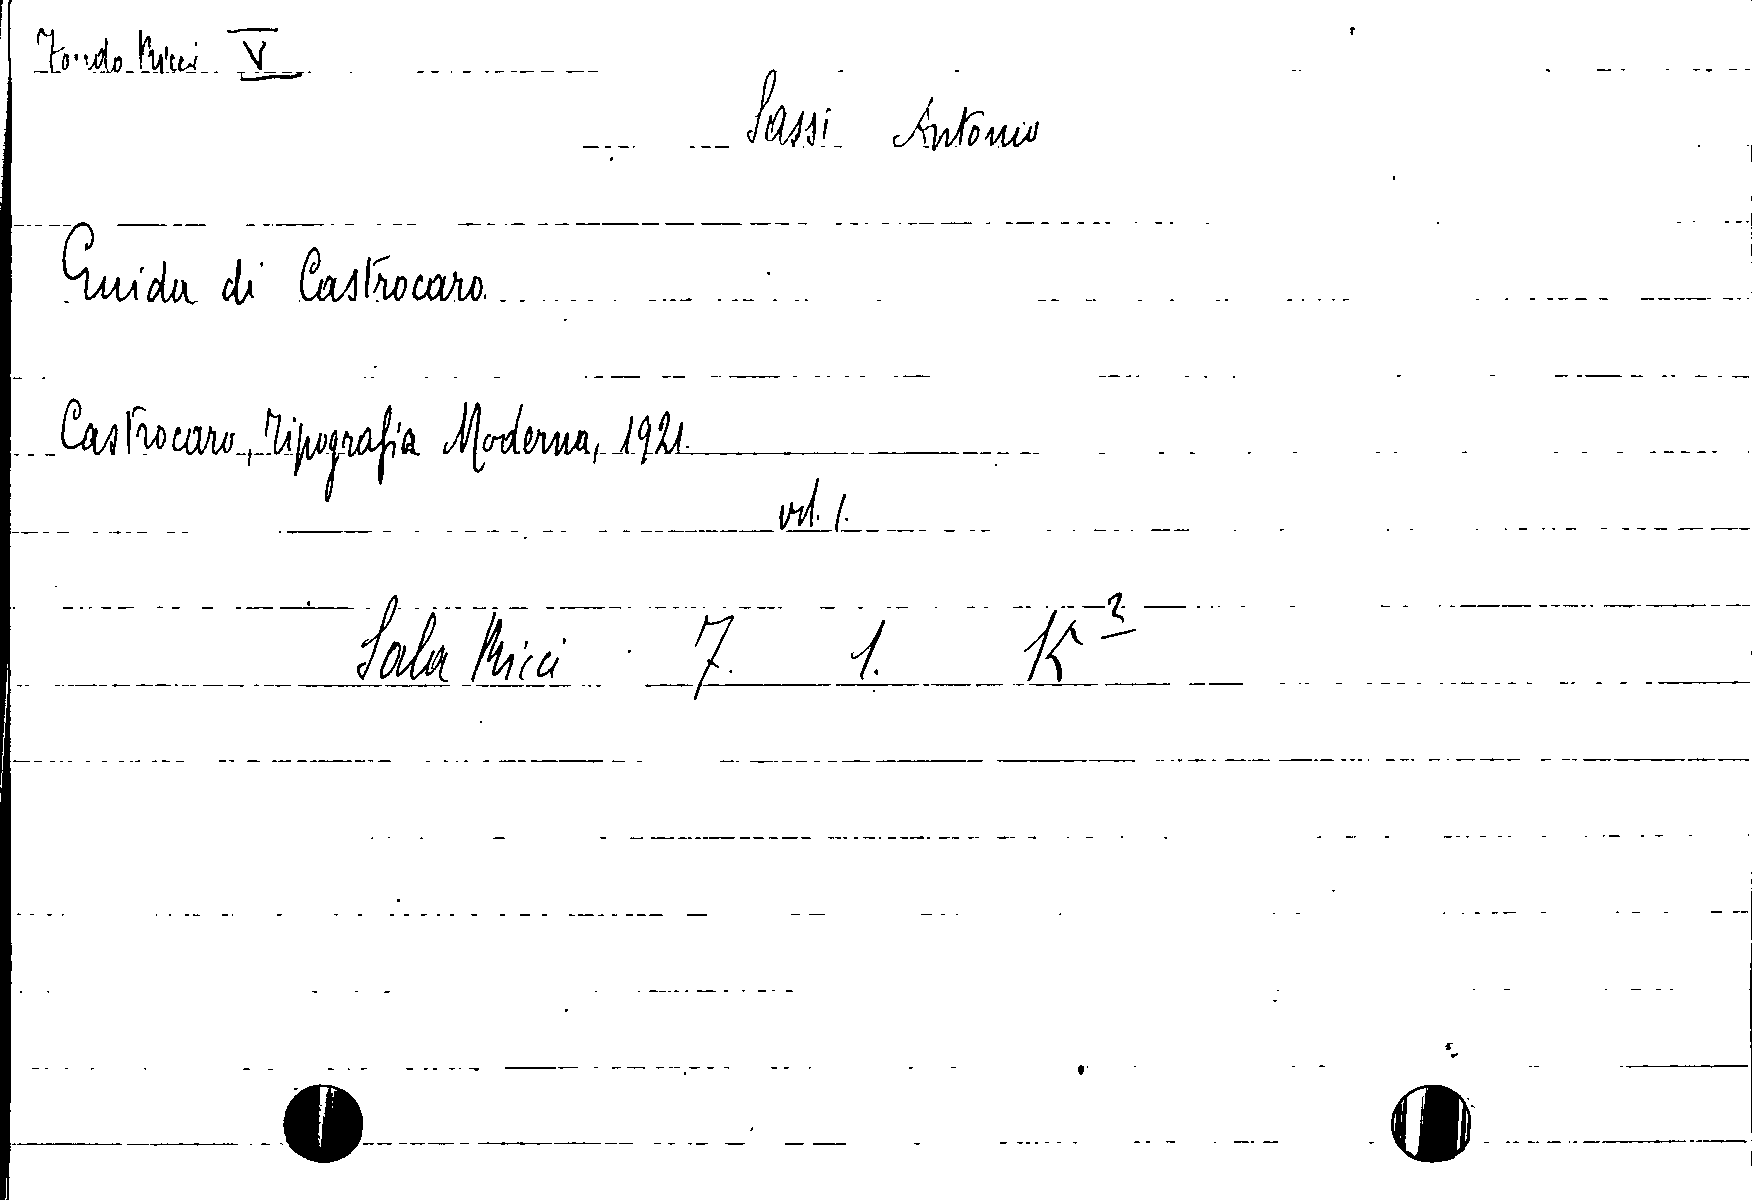 Fondo Ricci V
Sassi Antonio
Guida di Castrocaro.
Castrocaro, Tipografia Moderna, 1921.
vol. 1.
Sala Ricci 7. 1. K²